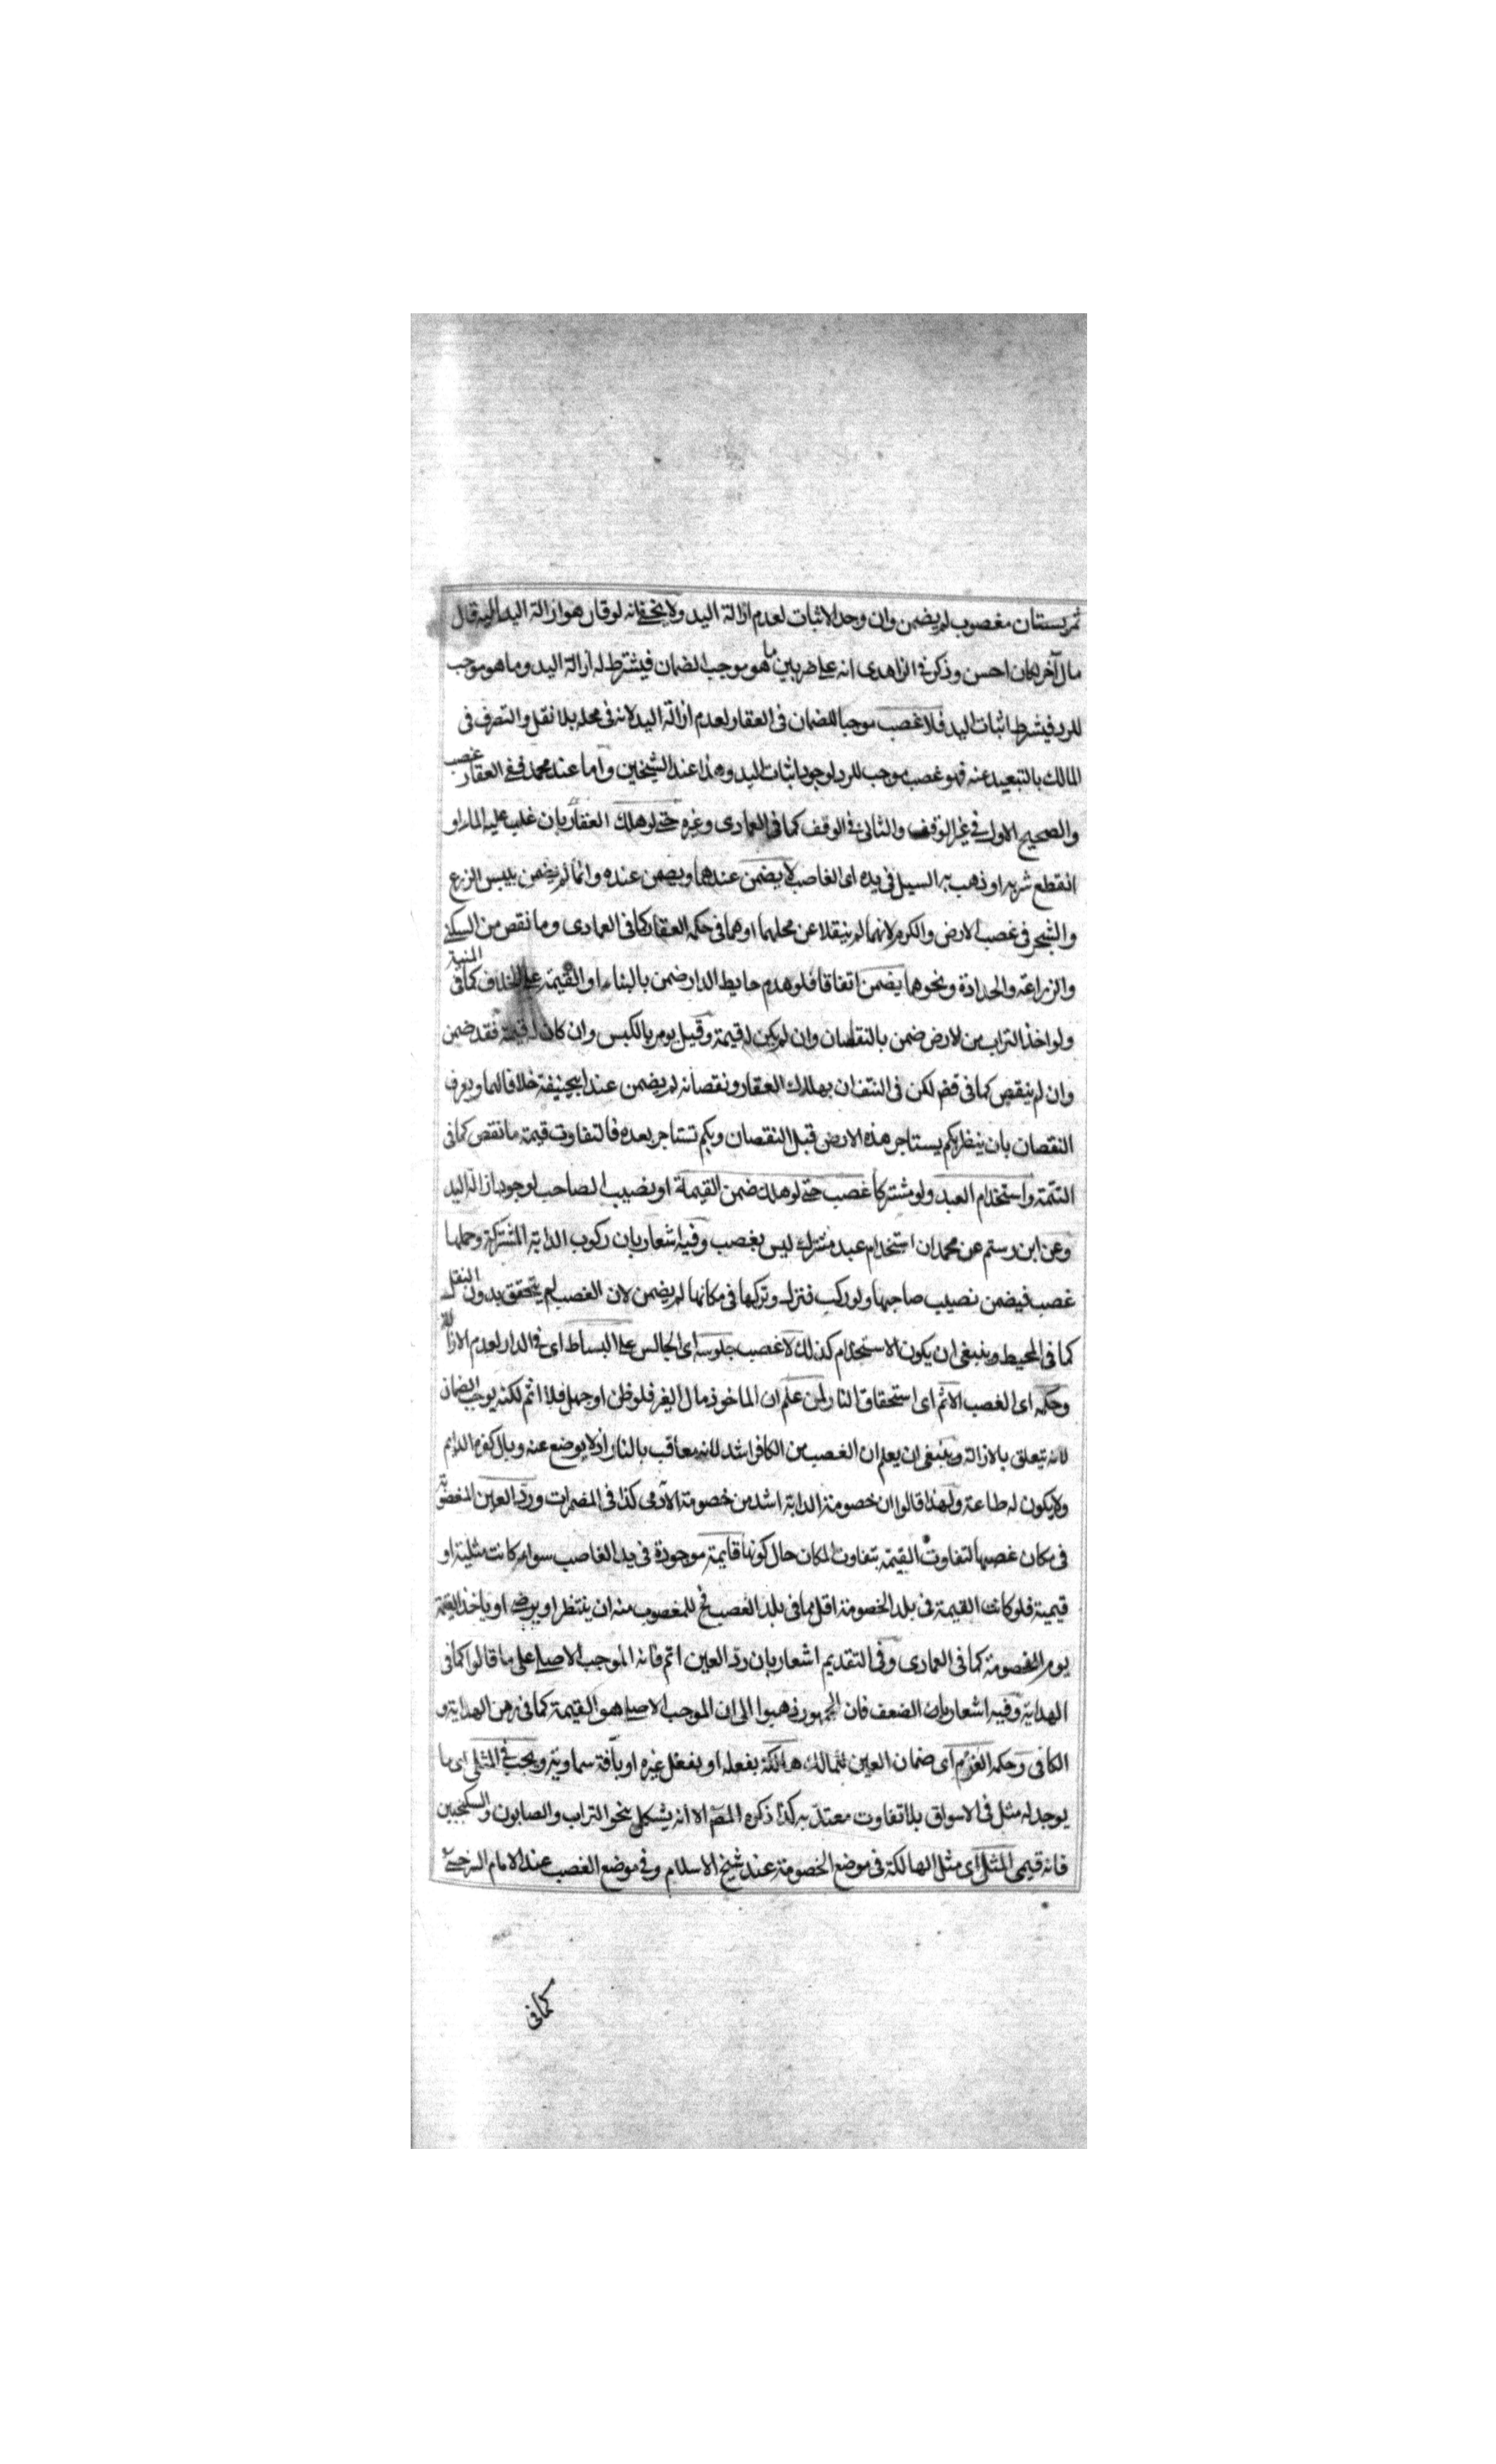 ثمر بستان مغصوب لم يضمن وان وجد الاثبات لعدم ازالة اليد ولا يخفى انه لو قال هو ازالة اليد قال
مال آخر لكان احسن وذكر فى الزاهدى انه على ضربين ما هو موجب الضمان فيشترط له ازالة اليد وما هو موجب
للرد فيشترط اثبات اليد فلا غصب موجبا للضمان فى العقار لعدم ازالة اليد لانه فى محله بلا نقل والتصرف فى
المالك بالتبعيد عنه فهو غصب موجب للرد لوجود اثبات اليد وهذا عند الشيخين وأما عند محمد ففى العقار غصب
والصحيح الاول فى غير الوقف والثانى فى الوقف كما فى العمادى وغيره حتى لو هلك العقار بان غلب عليه الماء او
انقطع شربه او ذهب به السيل فى يده اى الغاصب لا يضمن عندهما ويضمن عنده وانما لم يضمن بيبس الزرع
والشجر فى غصب الارض والكرم لانهما لم ينقلا عن محلهما او هما فى حكم العقار كما فى العمادى وما نقص من السكنى
والزراعة والحدادة ونحوهما يضمن اتفاقا فلو هدم حايط الدار ضمن بالبناء او القيمة على الخلاف كما فى المنية
ولو اخذ التراب من الارض ضمن بالنقصان وان لم يكن له قيمة وقيل يومر بالكبس وان كان له قيمة فقد ضمن
وان لم ينقص كما فى قض لكن فى النتف ان بهلاك العقار ونقصانه لم يضمن عند ابيحنيفة خلافا لهما ويعرف
النقصان بان ينظر بكم يستاجر هذه الارض قبل النقصان وبكم تستاجر بعده فالتفاوت قيمة ما نقص كما فى
التتمة واستخدام العبد ولو مشتركا غصب حتى لو هلك ضمن القيمة او نصيب الصاحب لوجود ازالة اليد
وعن ابن رستم عن محمد ان استخدام عبد مشترك ليس بغصب وفيه اشعار بان ركوب الدابة المشتركة وحملها
غصب فيضمن نصيب صاحبها ولو ركب فنزل وتركها فى مكانها لم يضمن لان الغصب لم يتحقق بدون النقل
كما فى المحيط وينبغى ان يكون الاستخدام كذلك لا غصب جلوسه اى الجالس على البساط اى فى الدار لعدم الازالة
وحكمه اى الغصب الاثم اى استحقاق النار لمن علم ان الماخوذ مال الغير فلو ظن او جهل فلا اثم لكنه يوجب الضمان
لانه يتعلق بالازالة وينبغى ان يعلم ان الغصب من الكافر اشد لانه معاقب بالنار اذ لا يوضع عنه وبال كفره الدايم
ولا يكون له طاعة ولهذا قالوا ان خصومة الدابة اشد من خصومة الآدمى كذا فى المضمرات وردّ العين المغصوبة
فى مكان غصبها لتفاوت القيمة بتفاوت المكان حال كونها قايمة موجودة فى يد الغاصب سواء كانت مثلية او
قيمية فلو كانت القيمة فى بلد الخصومة اقل مما فى بلد الغصب فح للمغصوب منه ان ينتظر او يرضى او ياخذ القيمة
يوم الخصومة كما فى العمادى وفى التقديم اشعار بان ردّ العين اتم فانه الموجب الاصلى على ما قالوا كما فى
الهداية وفيه اشعار بان الضعف فان الجمهور ذهبوا الى ان الموجب الاصلى هو القيمة كما فى رهن الهداية و
الكافى وحكمه الغرم اى ضمان العين للمالك هالكة بفعله او بفعل غيره او بآفة سماوية ويجب فى المثلى اى ما
يوجد له مثل فى الاسواق بلا تفاوت معتدّ به كذا ذكره المصَ الا انه يشكل بنحو التراب والصابون والسكنجبين
فانه قيمى المثل اى مثل الهالكة فى موضع الخصومة عند شيخ الاسلام وفى موضع الغصب عند الامام السرخسى
كما فى